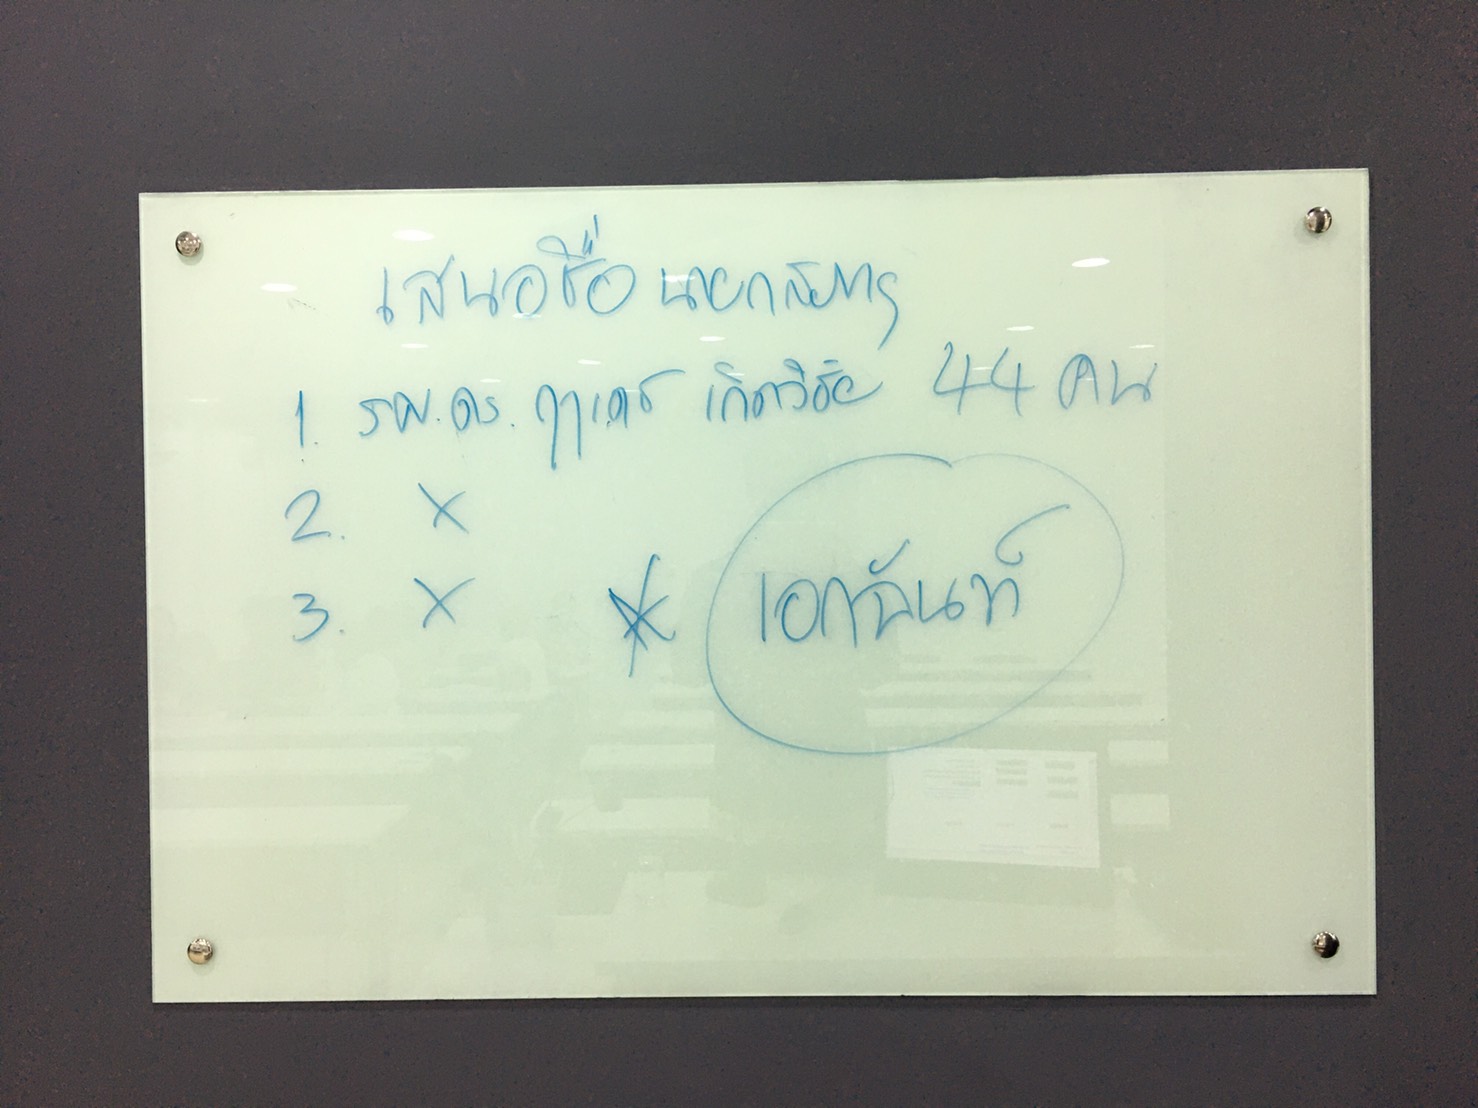 เสนอชื่อ นายกสมาคมฯ
1. รศ.ดร. ฤๅเดช เกิดวิชัย 44 คน
2. X
3. X
* เอกฉันท์